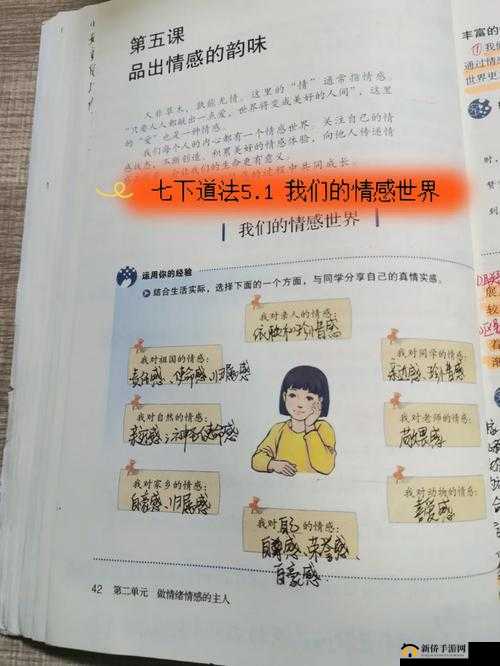 第五课
品出情感的韵味
人非草木，孰能无情。这里的“情”通常指情感。
“只要人人都献出一点爱，世界将变成美好的人间”，这里
的“爱”也是一种情感。
我们每个人的内心都有一个情感世界。关注自己的情
感状态，不断创造、积累美好的情感体验，向他人传递情
七下道法5.1 我们的情感世界
我们的情感世界
运用你的经验
结合生活实际，选择下面的一个方面，与同学分享自己的真情实感。
我对亲人的情感：
依恋和珍惜感
我对祖国的情感：
责任感、使命感、归属感
我对同学的情感：
亲近感、珍惜感
我对自然的情感：
我对老师的情感：
我对家乡的情感：
自豪感、归属感
我对动物的情感：
喜爱感
我对
的情感：
自尊感、荣誉感、
自豪感
42 第二单元 做情绪情感的主人
丰富的
①我们
通过情
世界更
新侨手游网